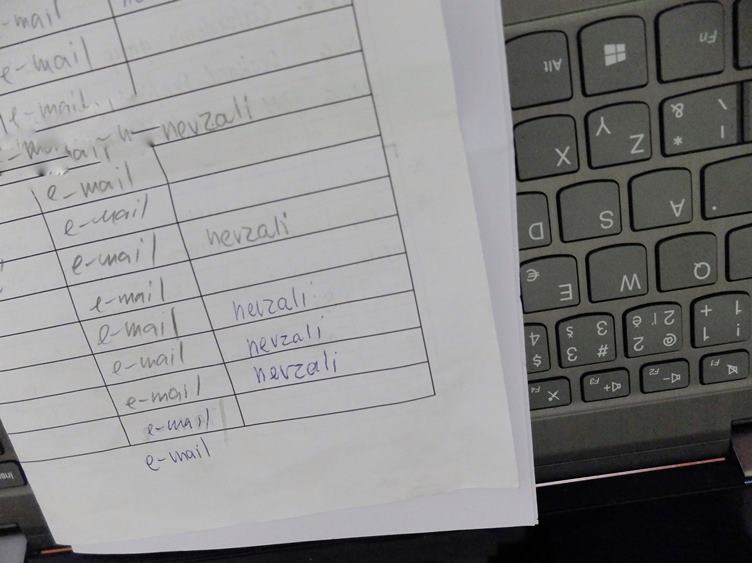 -mail
e-mail
e-mail
nevzali
e-mail
e-mail
e-mail nevzali
e-mail
e-mail nevzali
e-mail nevzali
e-mail nevzali
e-mail
e-mail
Alt Fn
X Z Y \ | * &
D S A
E € W Q
$ 4 # 3 § @ 2 ! 1 +
F4 F3 F2 F1
Ins